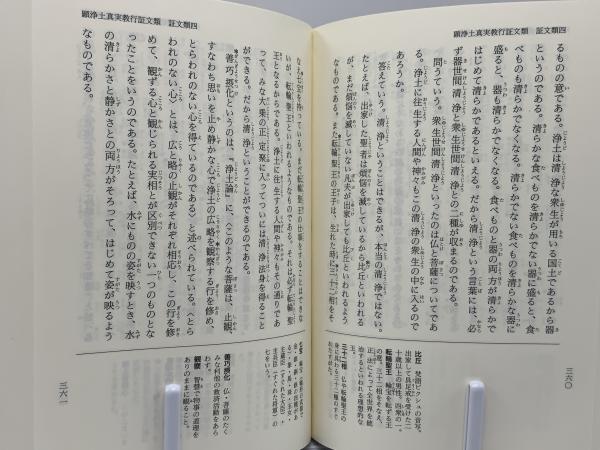 顕浄土真実教行証文類　証文類四
るものの意である。浄土は清浄な衆生が用いる国土であるから器
というのである。清らかな食べものを清らかでない器に盛ると、食
べものも清らかでなくなる。清らかでない食べものを清らかな器に
盛ると、器も清らかでなくなる。食べものと器の両方が清らかで
はじめて清らかであるといえる。だから清浄という言葉には、必
ず器世間清浄と衆生世間清浄との二種が収まるのである。
問うていう。衆生世間清浄といったのは仏と菩薩についてであ
る。浄土に往生する人間や神々もこの清浄の衆生の中に入るので
あろうか。
答えていう。清浄ということはできるが、本当の清浄ではない。
たとえば、出家した聖者は煩悩を滅しているから比丘といわれる
が、まだ煩悩を滅していない凡夫が出家しても比丘といわれるよう
なものである。また転輪聖王の王子は、生れた時に三十二相をそ
比丘　梵語ビクシュの音写。
出家して具足戒を受けた二
十歳以上の男性。四衆の一。
転輪聖王　輪宝を転ずる王
の意。三十二相をそなえ、
正法によって全世界を統
治するといわれる理想的な
王。
三十二相　仏や転輪聖王の
身に具わる三十二種のすぐ
れたすがた。
三六〇
顕浄土真実教行証文類　証文類四
なえ七宝を持っている。まだ転輪聖王の仕事をすることはできな
いが、転輪聖王といわれるようなものである。それは必ず転輪聖
王となるからである。浄土に往生する人間や神々もその通りであ
って、みな大乗の正定聚に入ってついには清浄法身を得ること
ができる。だから清浄ということができるのである。
善巧摂化というのは、『浄土論』に、〈このような菩薩は、止観、
すなわち思いを止め静かな心で浄土の広略を観察する行を修め、
とらわれのない心を得ているのである〉と述べられている。〈とら
われのない心〉とは、広と略の止観がそれぞれ相応し、この行を修
めて、観ずる心と観じられる実相とが区別できない一つのものとな
ったことをいうのである。たとえば、水にものの姿を映すとき、水
の清らかさと静かさとの両方がそろって、はじめて姿が映るよう
なものである。
善巧摂化　仏・菩薩のたく
みな利他の救済活動をあら
わす。
観察　智慧で物事の道理を
ありのままに観ること。
三六一